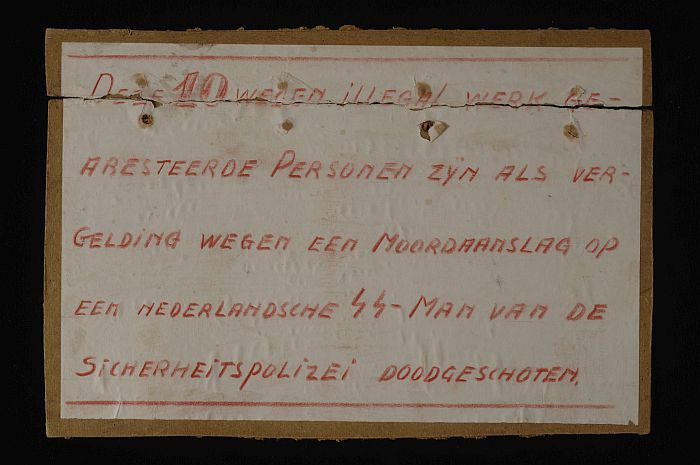 DEZE 10 WEGEN ILLEGAL WERK GE-
ARESTEERDE PERSONEN ZYN ALS VER-
GELDING WEGEN EEN MOORDAANSLAG OP
EEN NEDERLANDSCHE SS-MAN VAN DE
SICHERHEITSPOLIZEI DOODGESCHOTEN.